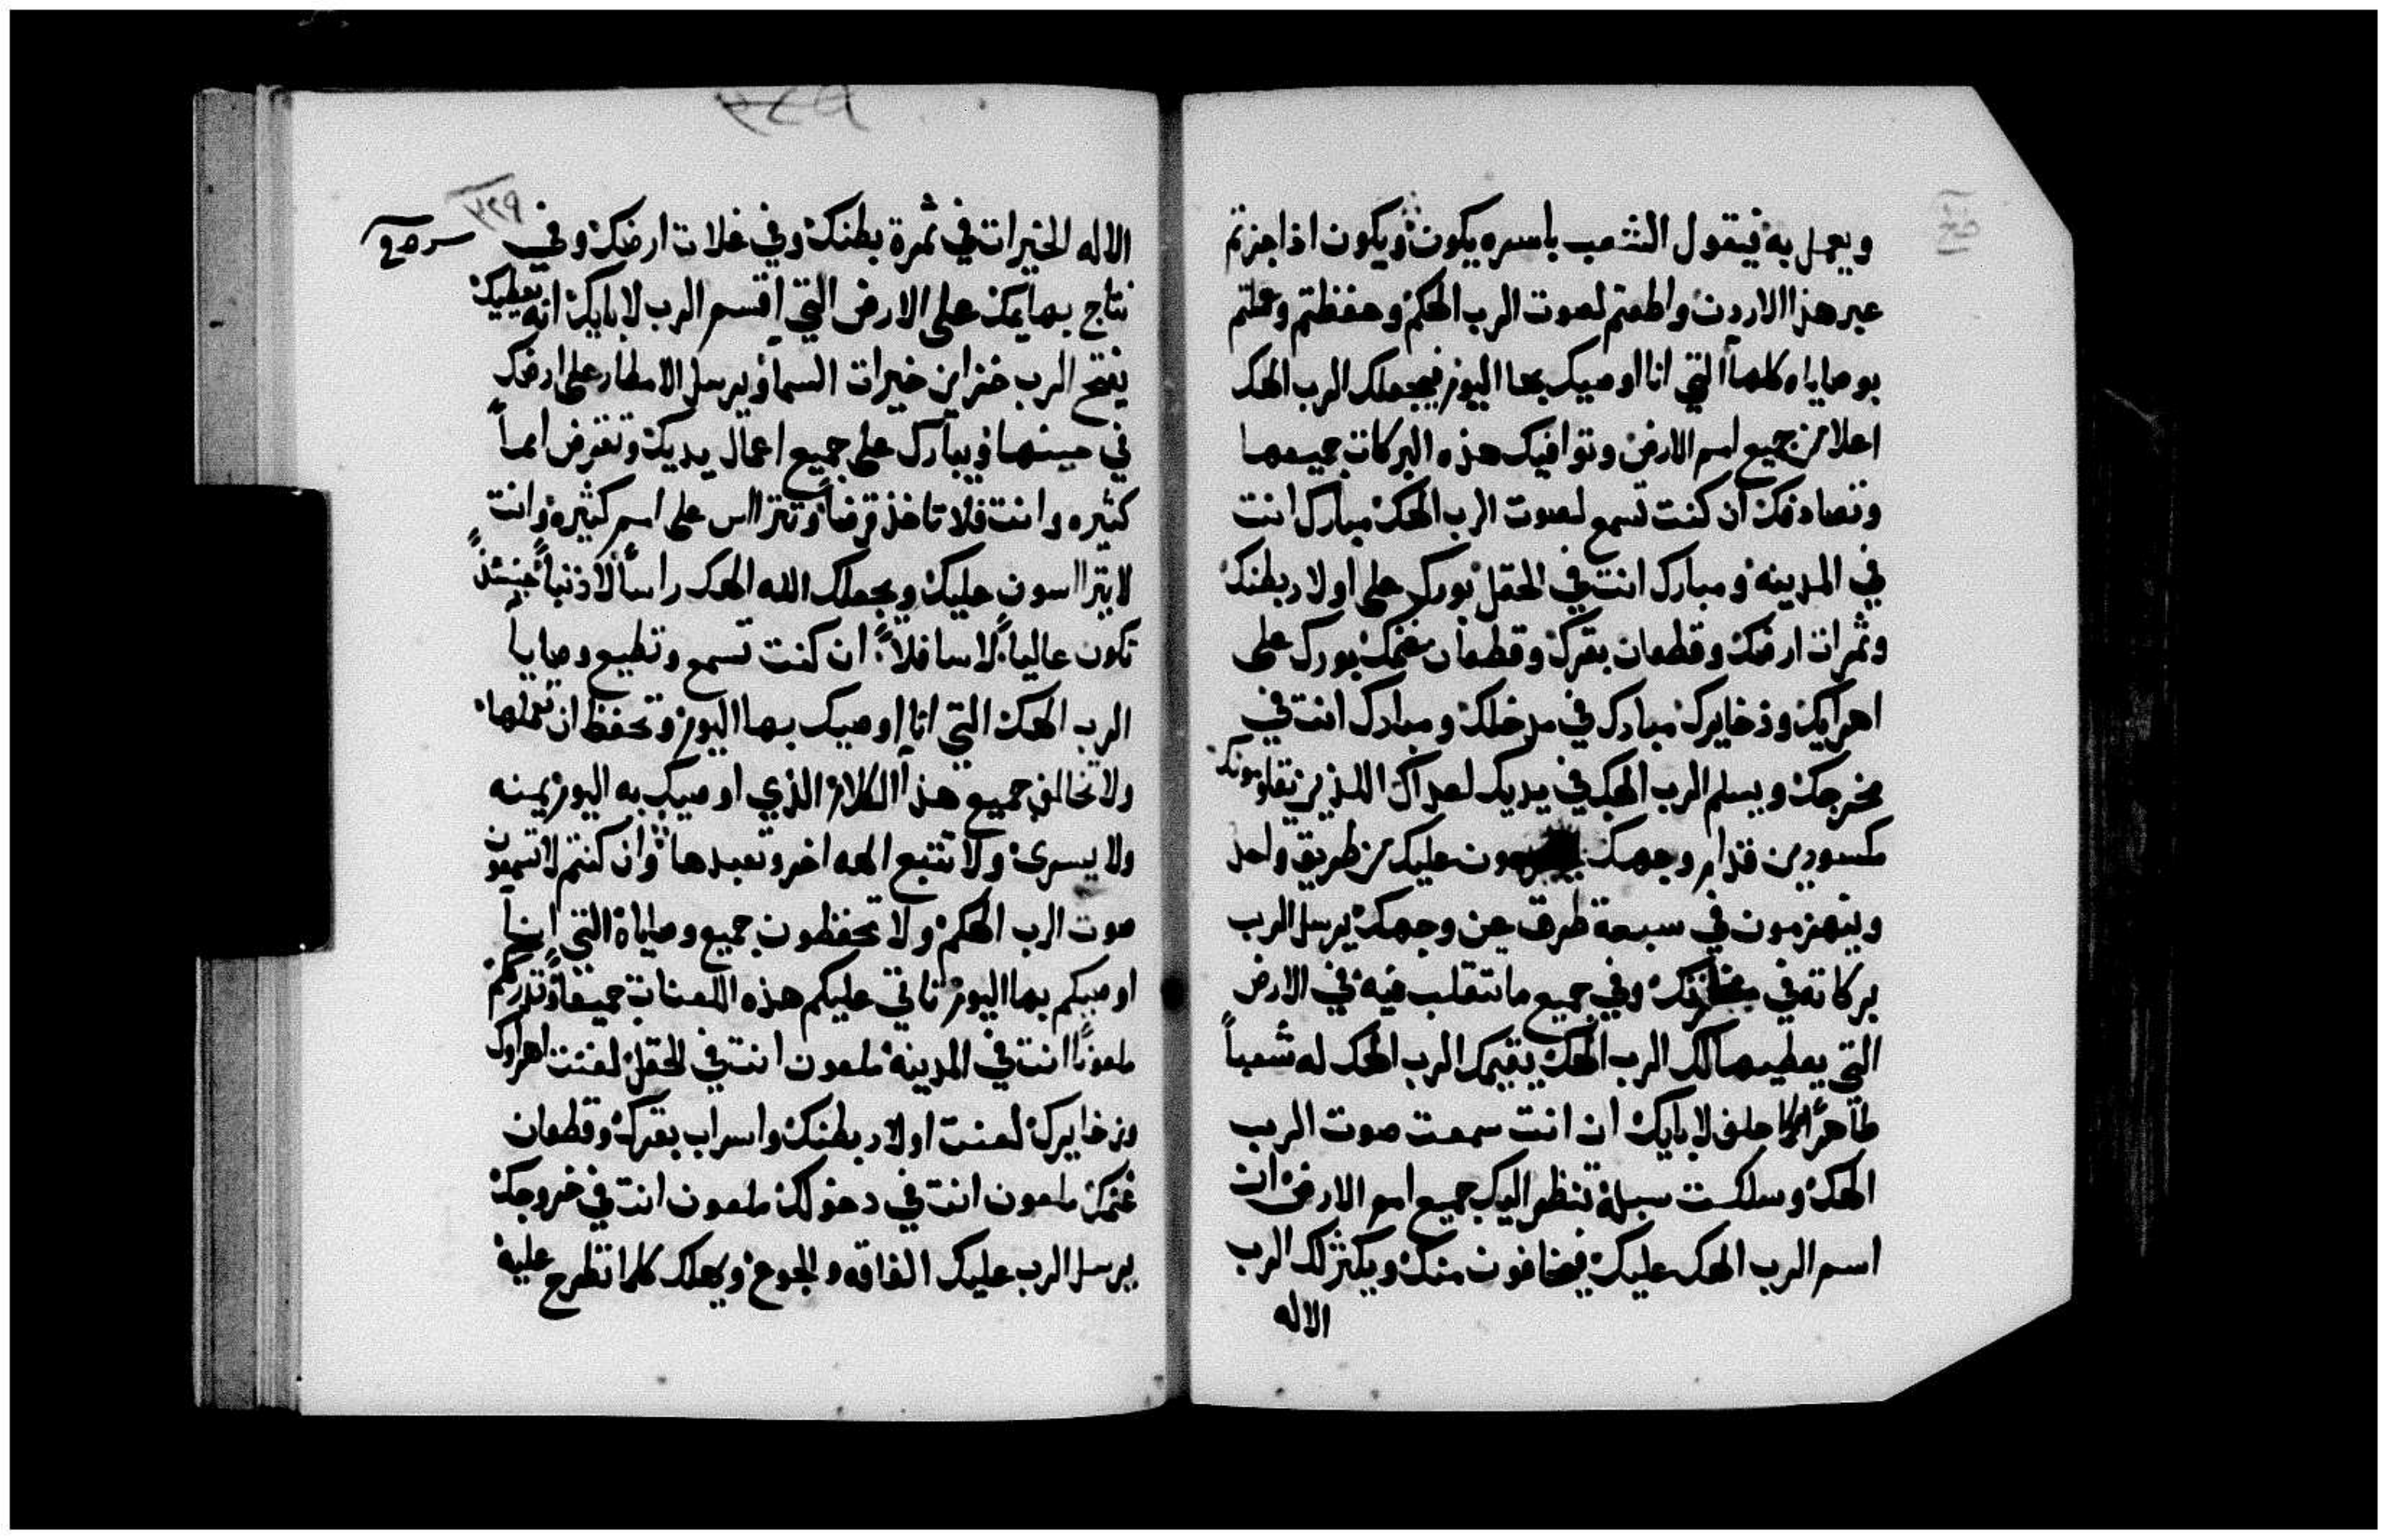 ويعمل به فيقول الشعب باسره يكون ويكون اذا جزتم
عبر هذا الاردن واطعتم لصوت الرب الهكم وحفظتم وعملتم
بوصاياه كلها التي انا اوصيك بها اليوم فيجعلك الرب الهك
اعلا من جميع امم الارض وتوافيك هذه البركات جميعها
وتصادفك ان كنت تسمع لصوت الرب الهك مبارك انت
في المدينه ومبارك انت في الحقل بورك على اولاد بطنك
وثمرات ارضك وقطعان بقرك وقطعان غنمك بورك على
اهرايك وذخايرك مبارك في مدخلك ومبارك انت في
مخرجك ويسلم الرب الهك في يديك اعداك اللذين يقاومونك
مكسورين قدام وجهك عليك من طريق واحد
وينهزمون في سبعة طرق عن وجهك يرسل الرب
بركاته في وفي جميع ما تتقلب فيه في الارض
التي يعطيها لك الرب الهك يقيمك الرب الهك له شعباً
طاهراً كما حلف لابايك ان انت سمعت صوت الرب
الهك وسلكت سبله تنظر اليك جميع امم الارض ان
اسم الرب الهك عليك فيخافون منك ويكثر لك الرب
الاله
الاله الخيرات في ثمرة بطنك وفي غلات ارضك وفي
نتاج بهايمك على الارض التي اقسم الرب لابايك انه يعطيك
يفتح الرب خزاين خيرات السما ويرسل الامطار على ارضك
في حينها ويبارك على جميع اعمال يديك وتقرض امماً
كثيره وانت فلا تاخذ قرضاً وتتراس على امم كثيره وانت
لا يتراسون عليك ويجعلك الله الهك راساً لا ذنباً حينئذً
تكون عالياً لا سافلاً ان كنت تسمع وتطيع وصايا
الرب الهك التي انا اوصيك بها اليوم وتحفظ ان تعملها
ولا تخالف جميع هذا الكلام الذي اوصيك به اليوم يمنه
ولا يسرى ولا تتبع الهه اخر وتعبدها وان كنتم لا تسمعون
صوت الرب الهكم ولا تحفظون جميع وصاياه التي انا
اوصيكم بها اليوم تاتي عليكم هذه اللعنات جميعاً وتدرككم
ملعوناً انت في المدينه ملعون انت في الحقل لعنت اهراوك
وذخايرك لعنت اولاد بطنك واسراب بقرك وقطعان
غنمك ملعون انت في دخولك ملعون انت في خروجك
يرسل الرب عليك الفاقه والجوع ويهلك كلما تطرح عليه